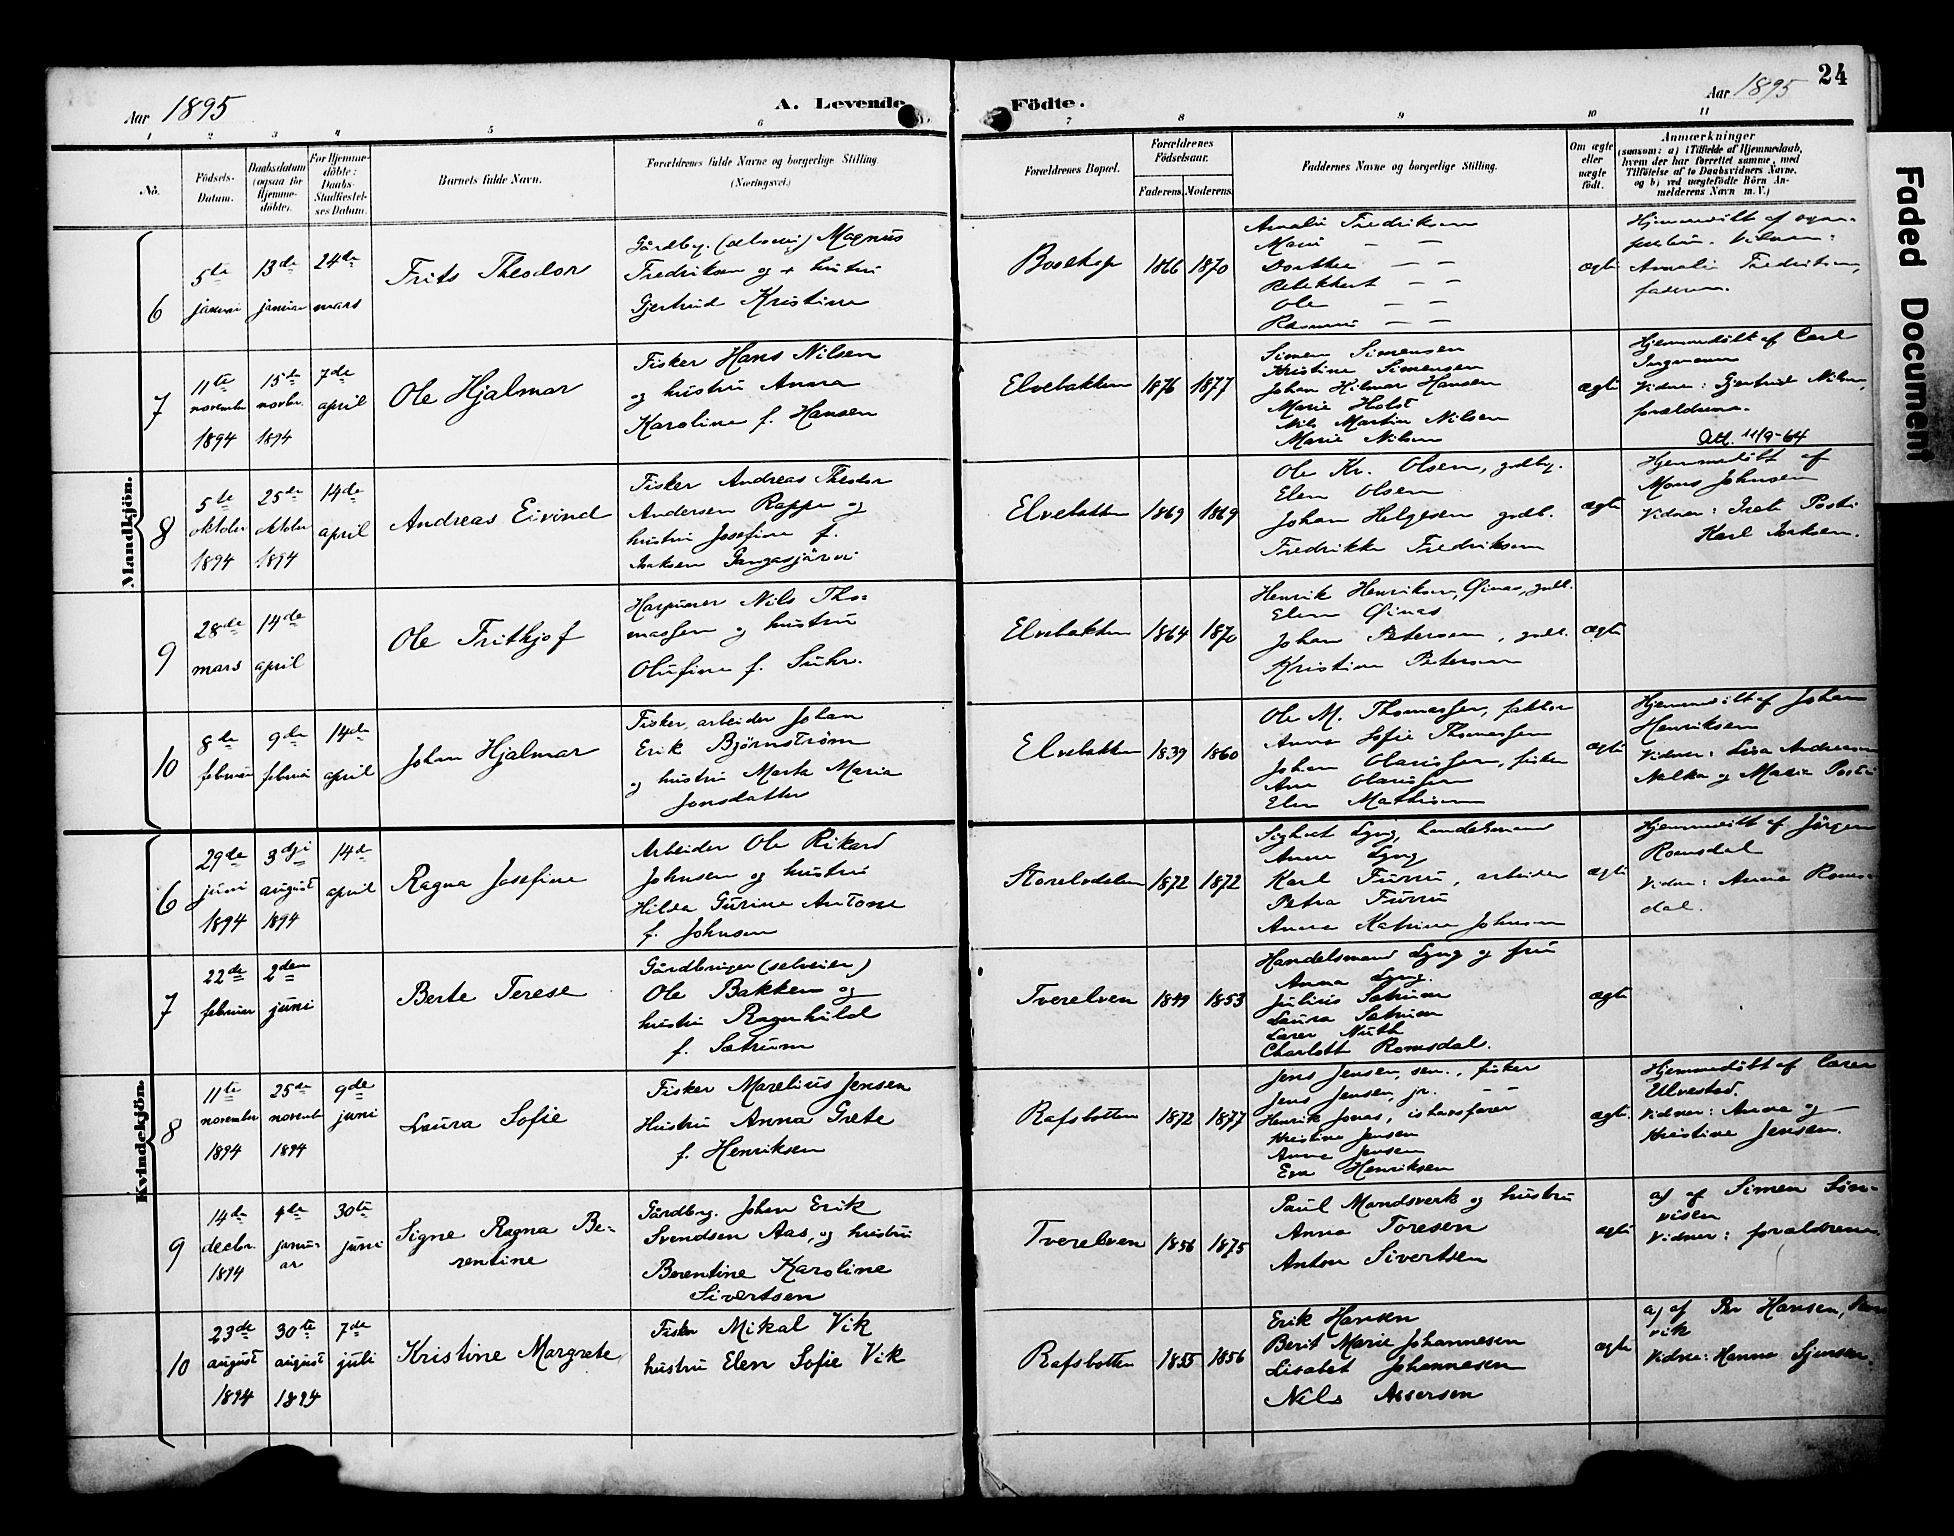 Aar 1895
A. Levende Födte.
Aar 1895
24
Faded Document
1 2 3 4 5 6 7 8 9 10 11
No.
Födsels-
Datum.
Daabsdatum
(ogsaa for
Hjemme-
döbte).
For Hjemme-
döbte:
Daabs-
Stadfæstel-
ses Datum.
Barnets fulde Navn.
Forældrenes fulde Navne og borgerlige Stilling.
(Næringsvei.)
Forældrenes Bopæl.
Forældrenes
Födselsaar.
Faderens. Moderens.
Faddernes Navne og borgerlige Stilling.
Om ægte
eller
uægte
födt.
Anmærkninger
(saasom: a) i Tilfælde af Hjemmedaab,
hvem der har forrettet samme, med
Tilföielse af to Daabsvidners Navne,
og b) ved uægtefödte Börn An-
melderens Navn m. V.)
Mandkjön.
6
5te
januar
13de
januar
24de
mars
Frits Theodor
Gårdbg. (selveier) Magnus
Fredriksen og hustru
Gjertrud Kristine
Bosekop
1866 1870
Amalie Fredriksen
Marie — —
Dorthea — —
— —
Ole — —
Rasmus — —
ægte
Hjemmedøbt af
Amalie Fredriksen,
faderen.
7
11te
november
1894
15de
novbr.
1894
7de
april
Ole Hjalmar
Fisker Hans Nilsen
og hustru Anna
Karoline f. Hansen
Elvebakken
1876 1877
Simen Simensen
Kristine Simensen
Johan Hilmar Hansen
Marie Holst
Nils Martin Nilsen
Marie Nilsen
ægte
Hjemmedøbt af Carl
Ingmann
Vidner: Gjertrud Nilsen,
forældrene.
Att. 11/9-64
8
5te
oktober
1894
25de
oktober
1894
14de
april
Andreas Eivind
Fisker Andreas Theodor
Andersen Rappe og
hustru Josefine f.
Isaksen Gangasjärvi
Elvebakken
1869 1869
Ole Kr. Olsen, gdbg.
Elen Olsen
Johan Helgesen gdb.
Fredrikke Fredriksen
ægte
Hjemmedøbt af
Mons Johnsen
Vidner: Posti
Karl Isaksen.
9
28de
mars
14de
april
Ole Frithjof
Harpuner Nils Tho-
massen og hustru
Olufine f. Suhr.
Elvebakken
1864 1870
Henrik Henriksen, Øinas, gdb.
Elen Øinas
Johan Petersen, gdb.
Kristine Petersen
ægte
10
8de
februar
9de
februar
14de
april
Johan Hjalmar
Fisker, arbeider Johan
Erik Bjørnstrøm
og hustru Marta Maria
Jonsdatter
Elvebakken
1839 1860
Ole M. Thomassen, faktor
Anna Sofie Thomassen
Johan Olaussen, fisker
Ane Olaussen
Elen Mathisen
ægte
Hjemmedøbt af Johan
Henriksen
Vidner: Lisa Andreasen
Nalka og Maria Posti
Kvindekjön.
6
29de
juni
1894
3die
august
1894
14de
april
Ragna Josefine
Arbeider Ole Rikard
Johnsen og hustru
Hilda Gurine Antone
f. Johnsen
Storelvdalen
1872 1872
Sigbert Lyng, handelsmand
Anna Lyng
Karl Furru, arbeider
Petra Furru
Anna Katrine Johnsen
ægte
Hjemmedøbt af Jørgen
Romsdal
Vidner: Anna Roms-
dal.
7
22de
februar
2den
juni
Berte Terese
Gårdbruger (selveier)
Ole Bakken og
hustru Ragnhild
f. Sætrum
Tverelven
1849 1853
Handelsmand Lyng og fru
Anna Lyng.
Julius Sætrum
Laura Sætrum
Laver Nuth
Charlotte Romsdal.
ægte
8
11te
november
1894
25de
november
1894
9de
juni
Laura Sofie
Fisker Marelius Jensen
Hustru Anna Grete
f. Henriksen
Rafsbotten
1872 1877
Jens Jensen, sen., fisker
Jens Jensen, jr. — —
Henrik Jonas, ishavsfarer
Kristine Jensen
Anne Jensen
Eva Henriksen
ægte.
Hjemmedøbt af Caren
Ulvestad.
Vidner: Anna og
Kristine Jensen.
9
14de
decbr.
1894
1de
janu-
ar
30te
juni
Signe Ragna Be-
rentine
Gårdbrg. Johan Erik
Svendsen Aas, og hustru
Berentine Karoline
Sivertsen
Tverelven
1856 1875
Paul Mandsverk og hustru
Anna Toresen
Anton Sivertsen
ægte
a) af Simen Sön-
visen
Vidner: forældrene
10
23de
august
1894
30te
august
1894
7de
juli
Kristine Margrete
Fisker Mikal Vik
hustru Elen Sofie Vik
Rafsbotten
1855 1856
Erik Hansen
Berit Marie Johannesen
Lisabet Johannesen
Nils Assersen
ægte
a) af Per Hansen,
vik
Vidner: Hanna Sjursen.